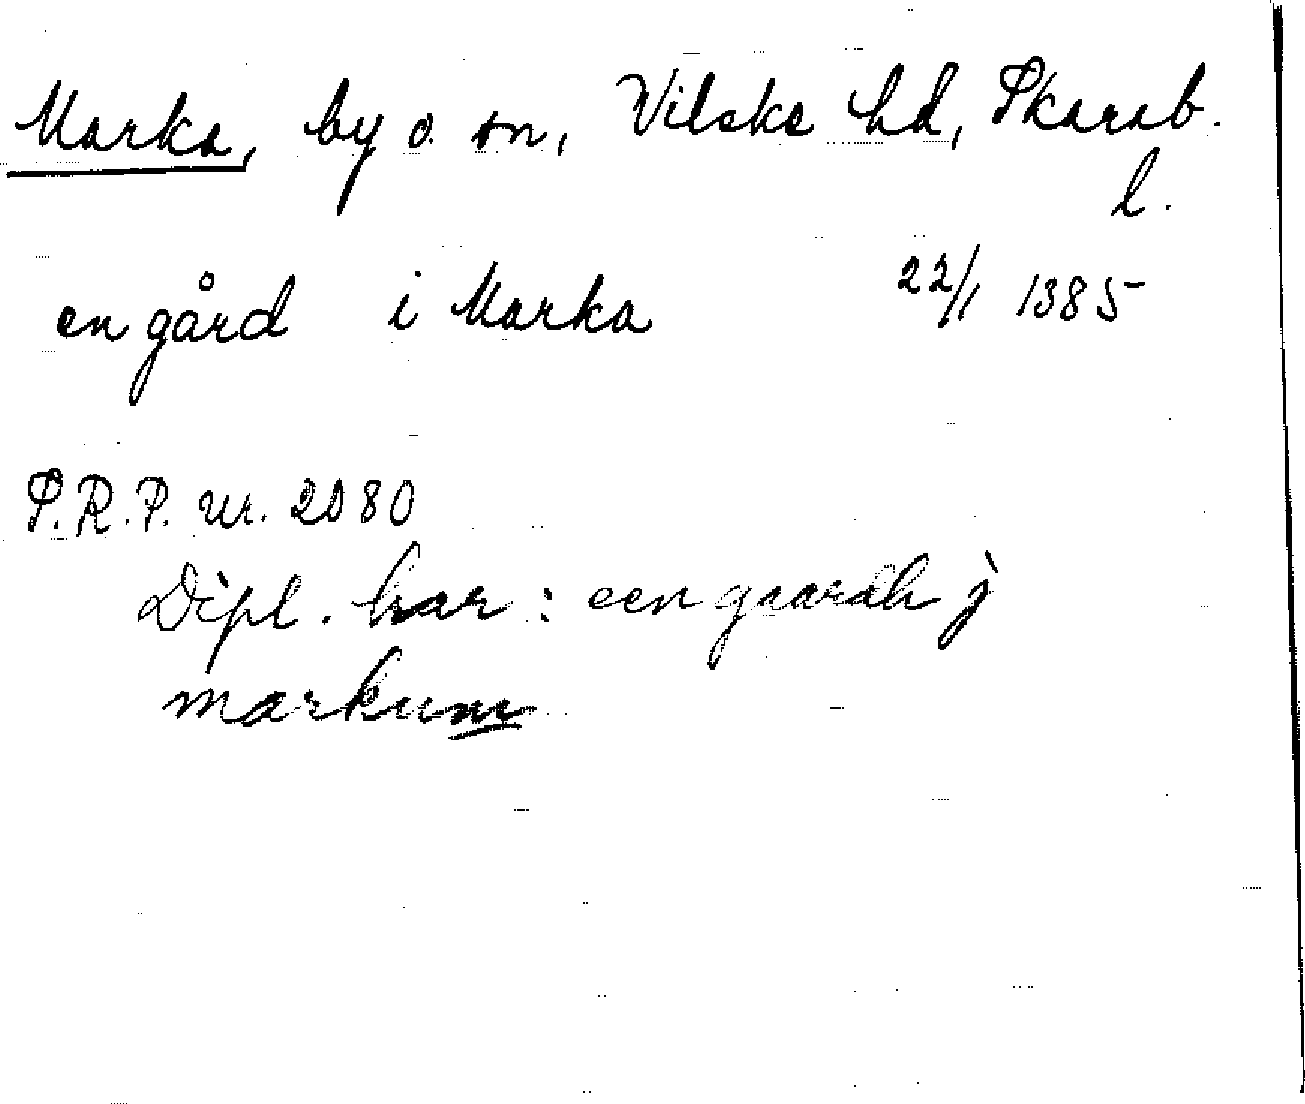 Marka, by o. sn, Vilske hd, Skarab.
l.
en gård i Marka 22/1 1385
P.R.P. nr. 2080
Dipl. har: een gaardh j
markum